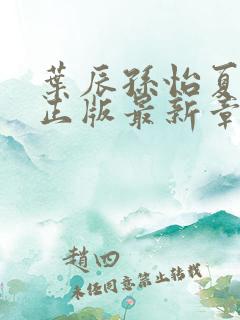 葉辰孫怡夏
正版最新章
趙四
未經同意禁止轉載